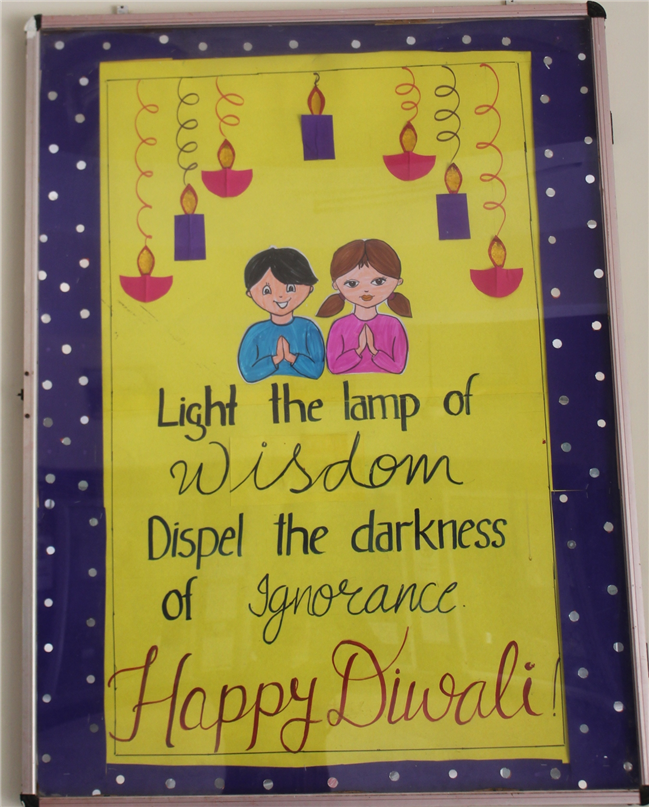 Light the lamp of
Wisdom
Dispel the darkness
of Ignorance.
Happy Diwali!